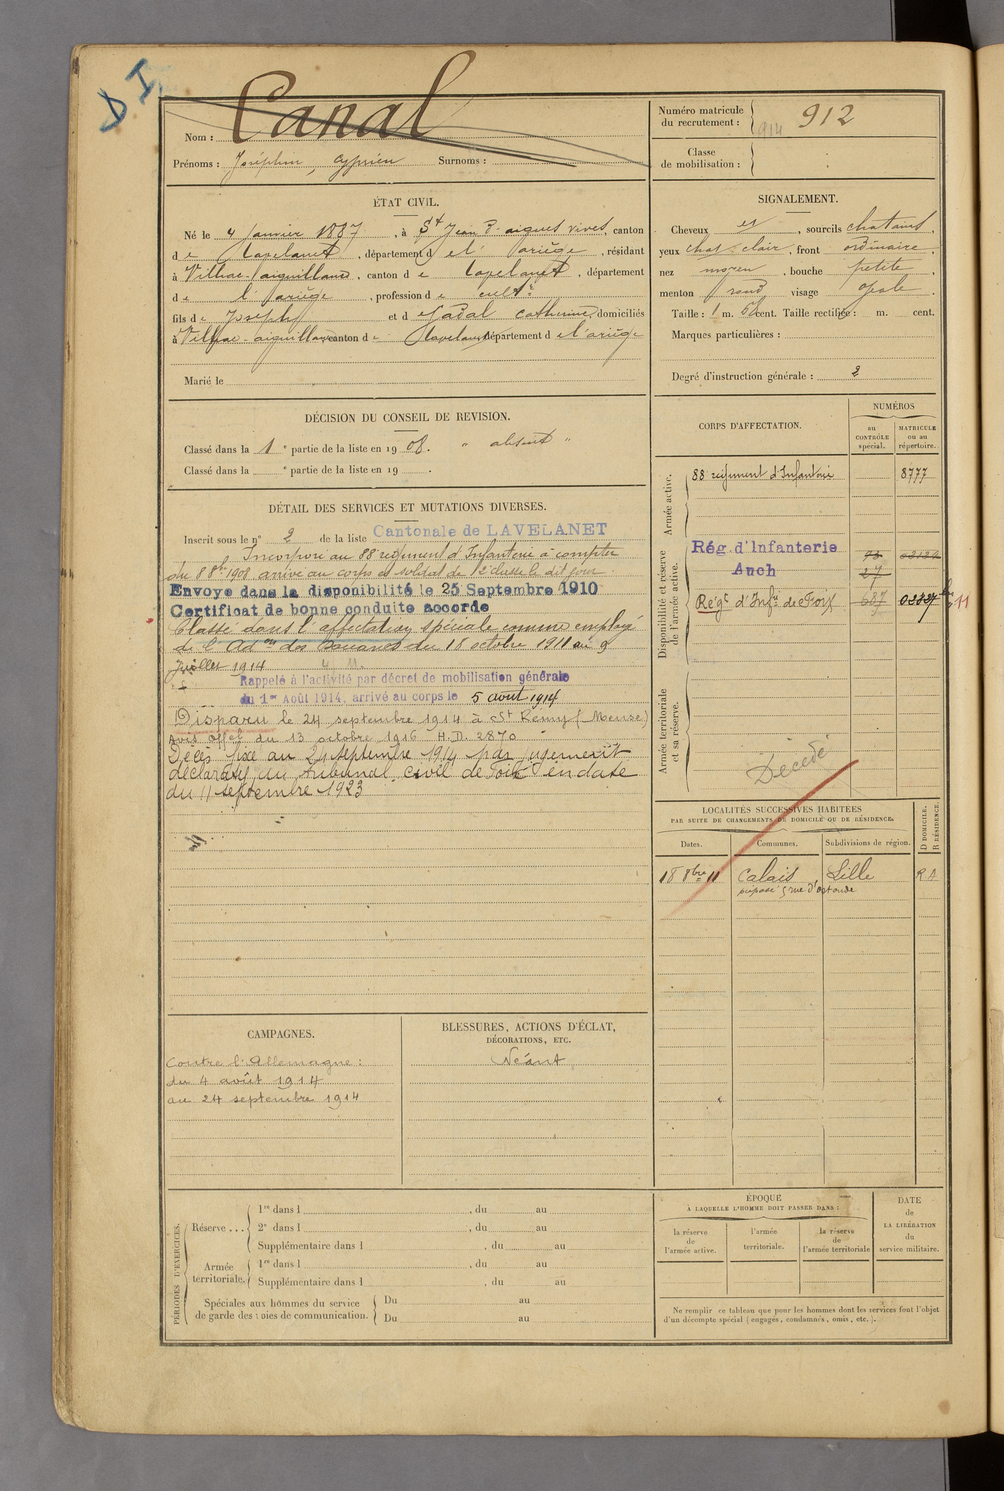 D I
Nom : Canal
Prénoms : Joséphin, Cyprien Surnoms :
Numéro matricule du recrutement : 914 912
Classe de mobilisation :
ÉTAT CIVIL.
Né le 4 Janvier 1887, à St Jean d'aigues vives, canton
de Lavelanet, département de l'ariège, résidant
à Villhac-aiguillanes, canton de Lavelanet, département
de l'Ariège, profession de cultr
fils de Joseph et de Catherine, domiciliés
à Villhac-aiguillanes canton de Lavelanet département de l'ariège
Marié le
SIGNALEMENT.
Cheveux et, sourcils chatains,
yeux chat. clair, front ordinaire,
nez moyen, bouche petite,
menton rond visage ovale.
Taille : 1 m. cent. Taille rectifiée : m. cent.
Marques particulières :
Degré d'instruction générale : 2
DÉCISION DU CONSEIL DE REVISION.
Classé dans la 1e partie de la liste en 1908. " absent "
Classé dans la e partie de la liste en 19 .
DÉTAIL DES SERVICES ET MUTATIONS DIVERSES.
Inscrit sous le n° 2 de la liste Cantonale de LAVELANET
Incorporé au 88 régiment d'Infanterie à compter
du 8 8bre 1908 arrivé au corps et soldat de 2e classe le dit jour
Envoye dans la disponibilité le 25 Septembre 1910
Certificat de bonne conduite accorde
Classé dans l'affectation spéciale comme employé
de l'Adon des Douanes du 18 octobre 1911 au 9
Juillet 1914
Rappelé à l'activité par décret de mobilisation générale
du 1er Août 1914, arrivé au corps le 5 aout 1914
Disparu le 24 septembre 1914 à St Remy (Meuse)
Avis offel du 13 octobre 1916 H.D. 2870
Décès fixé au 24 septembre 1914 par jugement
déclaratif du Tribunal civil de Foix en date
du 11 septembre 1923
CORPS D'AFFECTATION.
NUMÉROS
au CONTRÔLE spécial.
MATRICULE ou au répertoire.
Armée active.
88 régiment d'Infanterie 8777
Disponibilité et réserve de l'armée active.
Rég. d'Infanterie
Auch
27
Régt d'Infie de Foix 687
Armée territoriale et sa réserve.
Décédé
LOCALITÉS SUCCESSIVES HABITÉES
PAR SUITE DE CHANGEMENTS DE DOMICILE OU DE RÉSIDENCE.
Dates. Communes. Subdivisions de région. D DOMICILE. R RÉSIDENCE.
18 8bre 11 Calais Lille
CAMPAGNES.
Contre l'Allemagne :
du 4 août 1914
au 24 septembre 1914
BLESSURES, ACTIONS D'ÉCLAT,
DÉCORATIONS, ETC.
Néant
PÉRIODES D'EXERCICES.
Réserve ....
1re dans l , du au
2e dans l , du au
Supplémentaire dans l , du au
Armée territoriale.
1re dans l , du au
Supplémentaire dans l , du au
Spéciales aux hommes du service de garde des voies de communication.
Du au
Du au
ÉPOQUE
À LAQUELLE L'HOMME DOIT PASSER DANS :
la réserve de l'armée active.
l'armée territoriale.
la réserve de l'armée territoriale
DATE de LA LIBÉRATION du service militaire.
Ne remplir ce tableau que pour les hommes dont les services font l'objet
d'un décompte spécial (engagés, condamnés, omis, etc.).